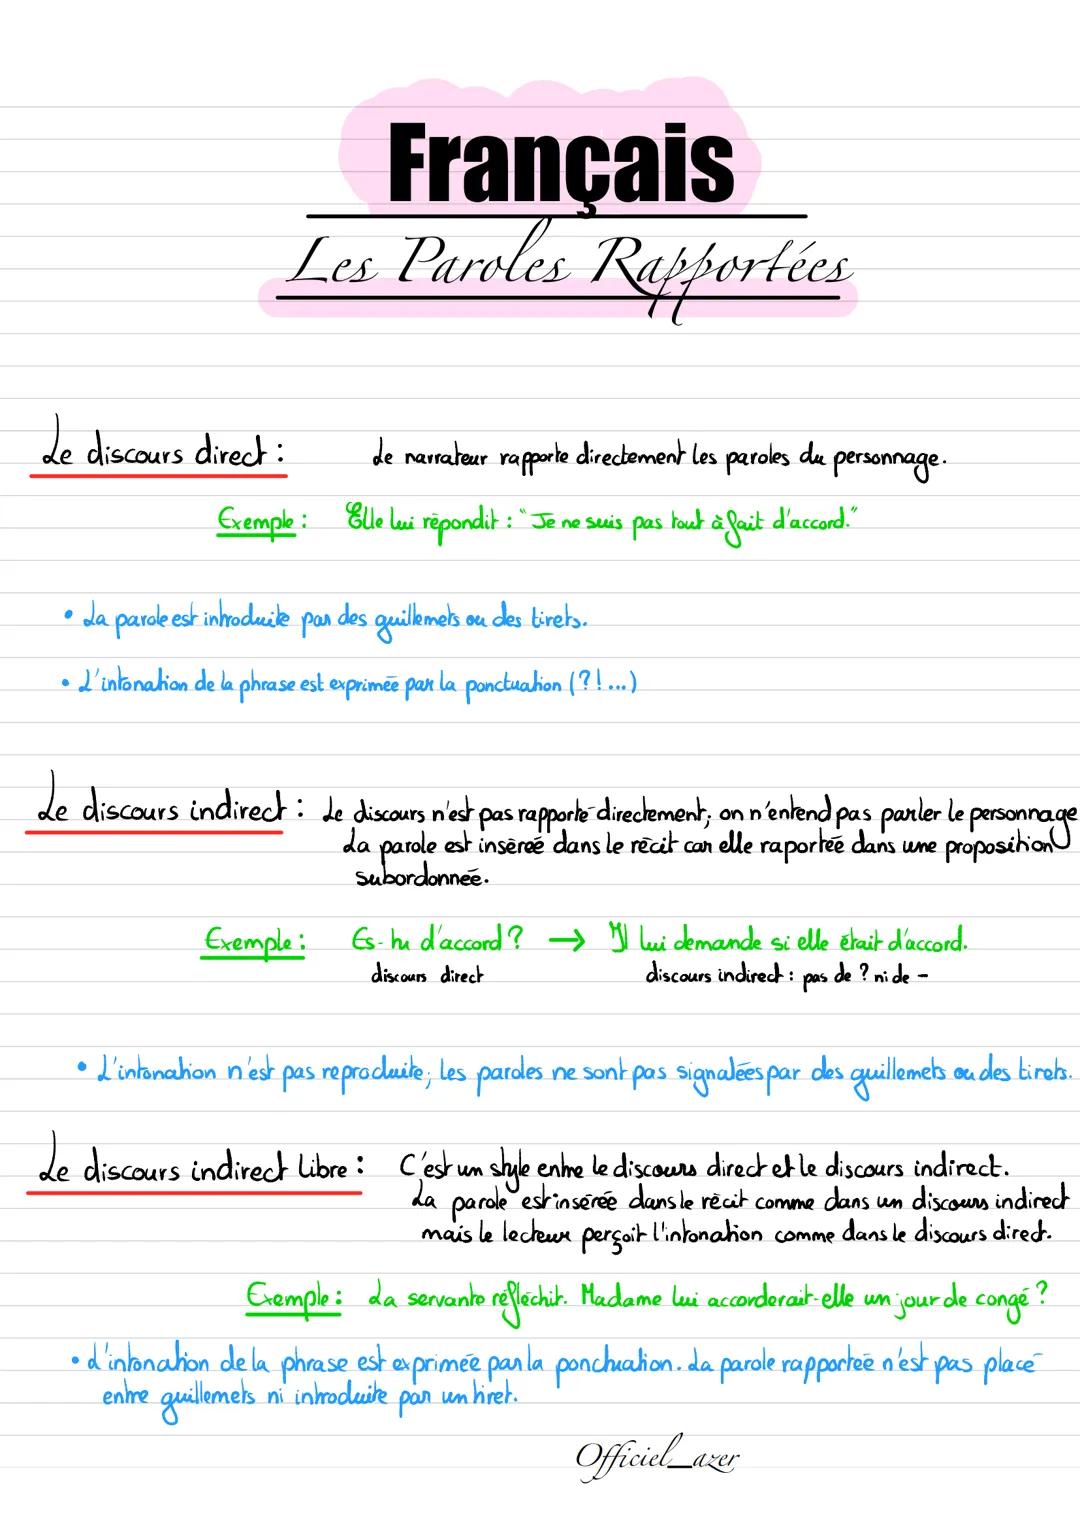 Français
Les Paroles Rapportées
Le discours direct : Le narrateur rapporte directement les paroles du personnage.
Exemple : Elle lui répondit : "Je ne suis pas tout à fait d'accord."
• La parole est introduite par des guillemets ou des tirets.
• L'intonation de la phrase est exprimée par la ponctuation (?!...)
Le discours indirect : Le discours n'est pas rapporté directement; on n'entend pas parler le personnage
La parole est inséreé dans le récit car elle raportée dans une proposition
subordonnée.
Exemple : Es-tu d'accord ? → Il lui demande si elle était d'accord.
discours direct discours indirect : pas de ? ni de -
• L'intonation n'est pas reproduite; les paroles ne sont pas signalées par des guillemets ou des tirets.
Le discours indirect libre : C'est un style entre le discours direct et le discours indirect.
La parole est insérée dans le récit comme dans un discours indirect
mais le lecteur perçoit l'intonation comme dans le discours direct.
Exemple : La servante réfléchit. Madame lui accorderait-elle un jour de congé ?
• L'intonation de la phrase est exprimée par la ponctuation. La parole rapportée n'est pas placé
entre guillemets ni introduite par un tiret.
Officiel_azer